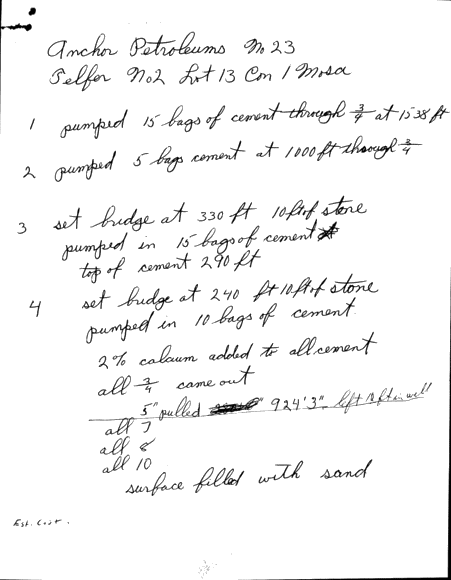 Anchor Petroleums No 23
Telfer No2 Lot 13 Con 1 Mosa
1 pumped 15 bags of cement through 3/4 at 1538 ft
2 pumped 5 bags cement at 1000 ft through 3/4
3 set bridge at 330 ft 10 ft of stone
pumped in 15 bags of cement
top of cement 290 ft
4 set bridge at 240 ft 10 ft of stone
pumped in 10 bags of cement
2% calcium added to all cement
all 3/4 came out
5" pulled 924'3" left in well
all 7
all 8
all 10
surface filled with sand
Est. Cost.